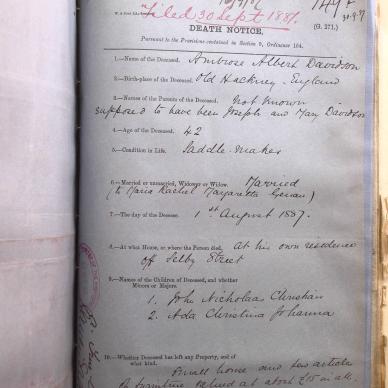 Filed 30 Sept 1887.
(G. 271.)
DEATH NOTICE,
Pursuant to the Provisions contained in Section 9, Ordinance 104.
1.—Name of the Deceased. Ambrose Albert Davidson
2.—Birth-place of the Deceased. Old Hackney - England
3.—Names of the Parents of the Deceased. Not known
supposed to have been Joseph and Mary Davidson
4.—Age of the Deceased. 42
5.—Condition in Life. Saddle-maker
6.—Married or unmarried, Widower or Widow. Married
(to Maria Rachel Margaretta
7.—The day of the Decease. 1st August 1887.
8.—At what House, or where the Person died, at his own residence
off Selby Street
9.—Names of the Children of Deceased, and whether
Minors or Majors.
1. John Nicholaas Christian
2. Ada Christina Johanna
10.—Whether Deceased has left any Property, and of
what kind.
Small house and few articles
of furniture valued at about £15 in all.